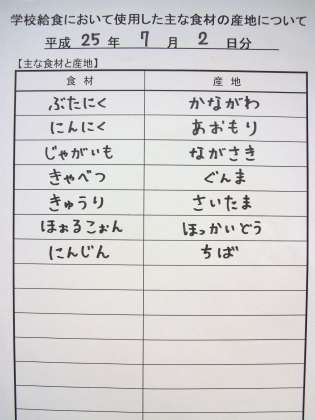 学校給食において使用した主な食材の産地について
平成 25 年 7 月 2 日分
【主な食材と産地】
食材 産地
ぶたにく かながわ
にんにく あおもり
じゃがいも ながさき
きゃべつ ぐんま
きゅうり さいたま
ほぉるこぉん ほっかいどう
にんじん ちば